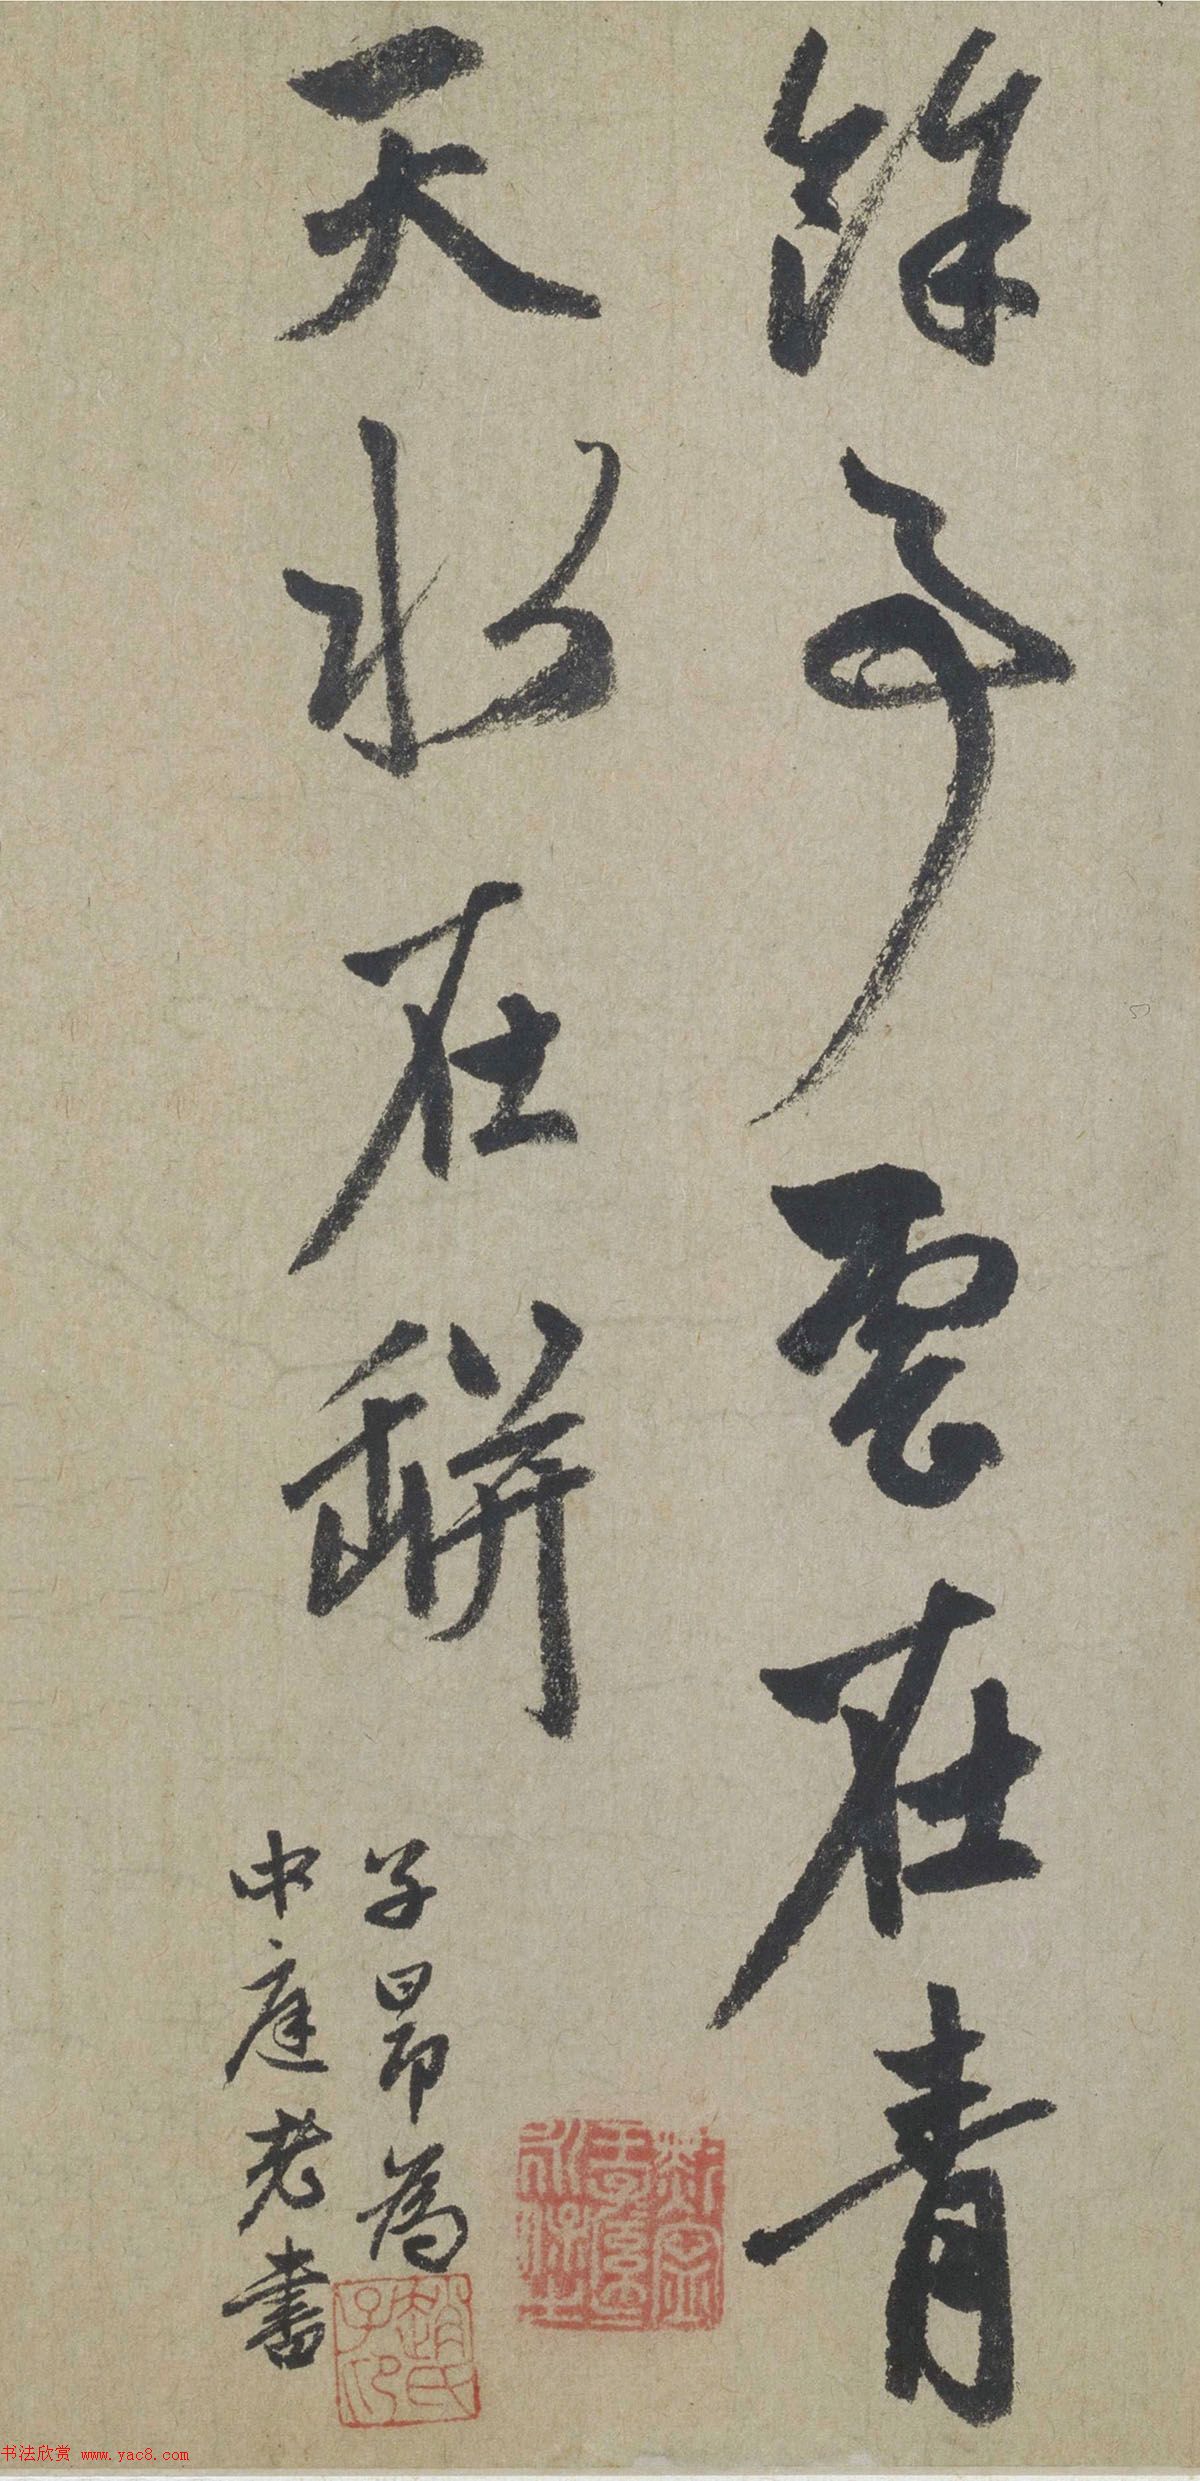 餘事雲在青
天水在缾
子昂為
中庭老書
趙氏子印
书法欣赏 www.yac8.com